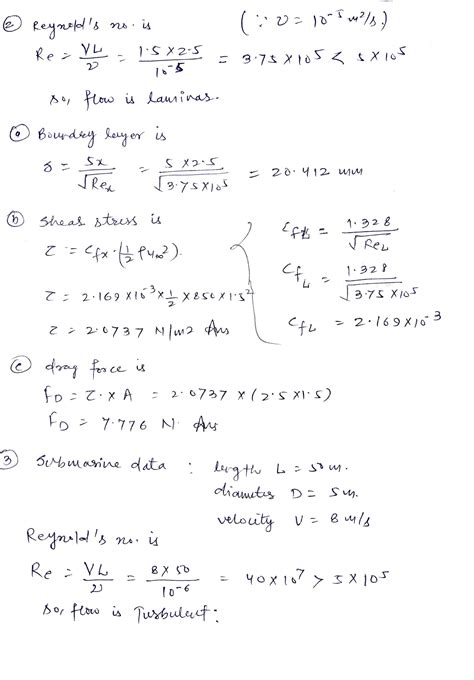 ② Reynold's no. is (∵ υ = 10⁻⁵ m²/s.)
Re = VL/υ = 1.5 × 2.5/10⁻⁵ = 3.75 × 10⁵ < 5 × 10⁵
so, flow is laminar.
ⓐ Boundry layer is
δ = 5x/√Reₓ = 5 × 2.5/√3.75×10⁵ = 20.412 mm
ⓑ Shear stress is
τ = Cfx · (1/2 ρu∞²).
τ = 2.169 × 10⁻³ × 1/2 × 850 × 1.5²
τ = 2.0737 N/m2 Ans
CfL = 1.328/√ReL
CfL = 1.328/√3.75 × 10⁵
CfL = 2.169 × 10⁻³
ⓒ drag force is
FD = τ. × A = 2.0737 × (2.5 × 1.5)
FD = 7.776 N. Ans
③ Submarine data : length L = 50 m.
diameter D = 5 m.
velocity V = 8 m/s
Reynold's no. is
Re = VL/υ = 8 × 50/10⁻⁶ = 40 × 10⁷ > 5 × 10⁵
so, flow is Turbulent: